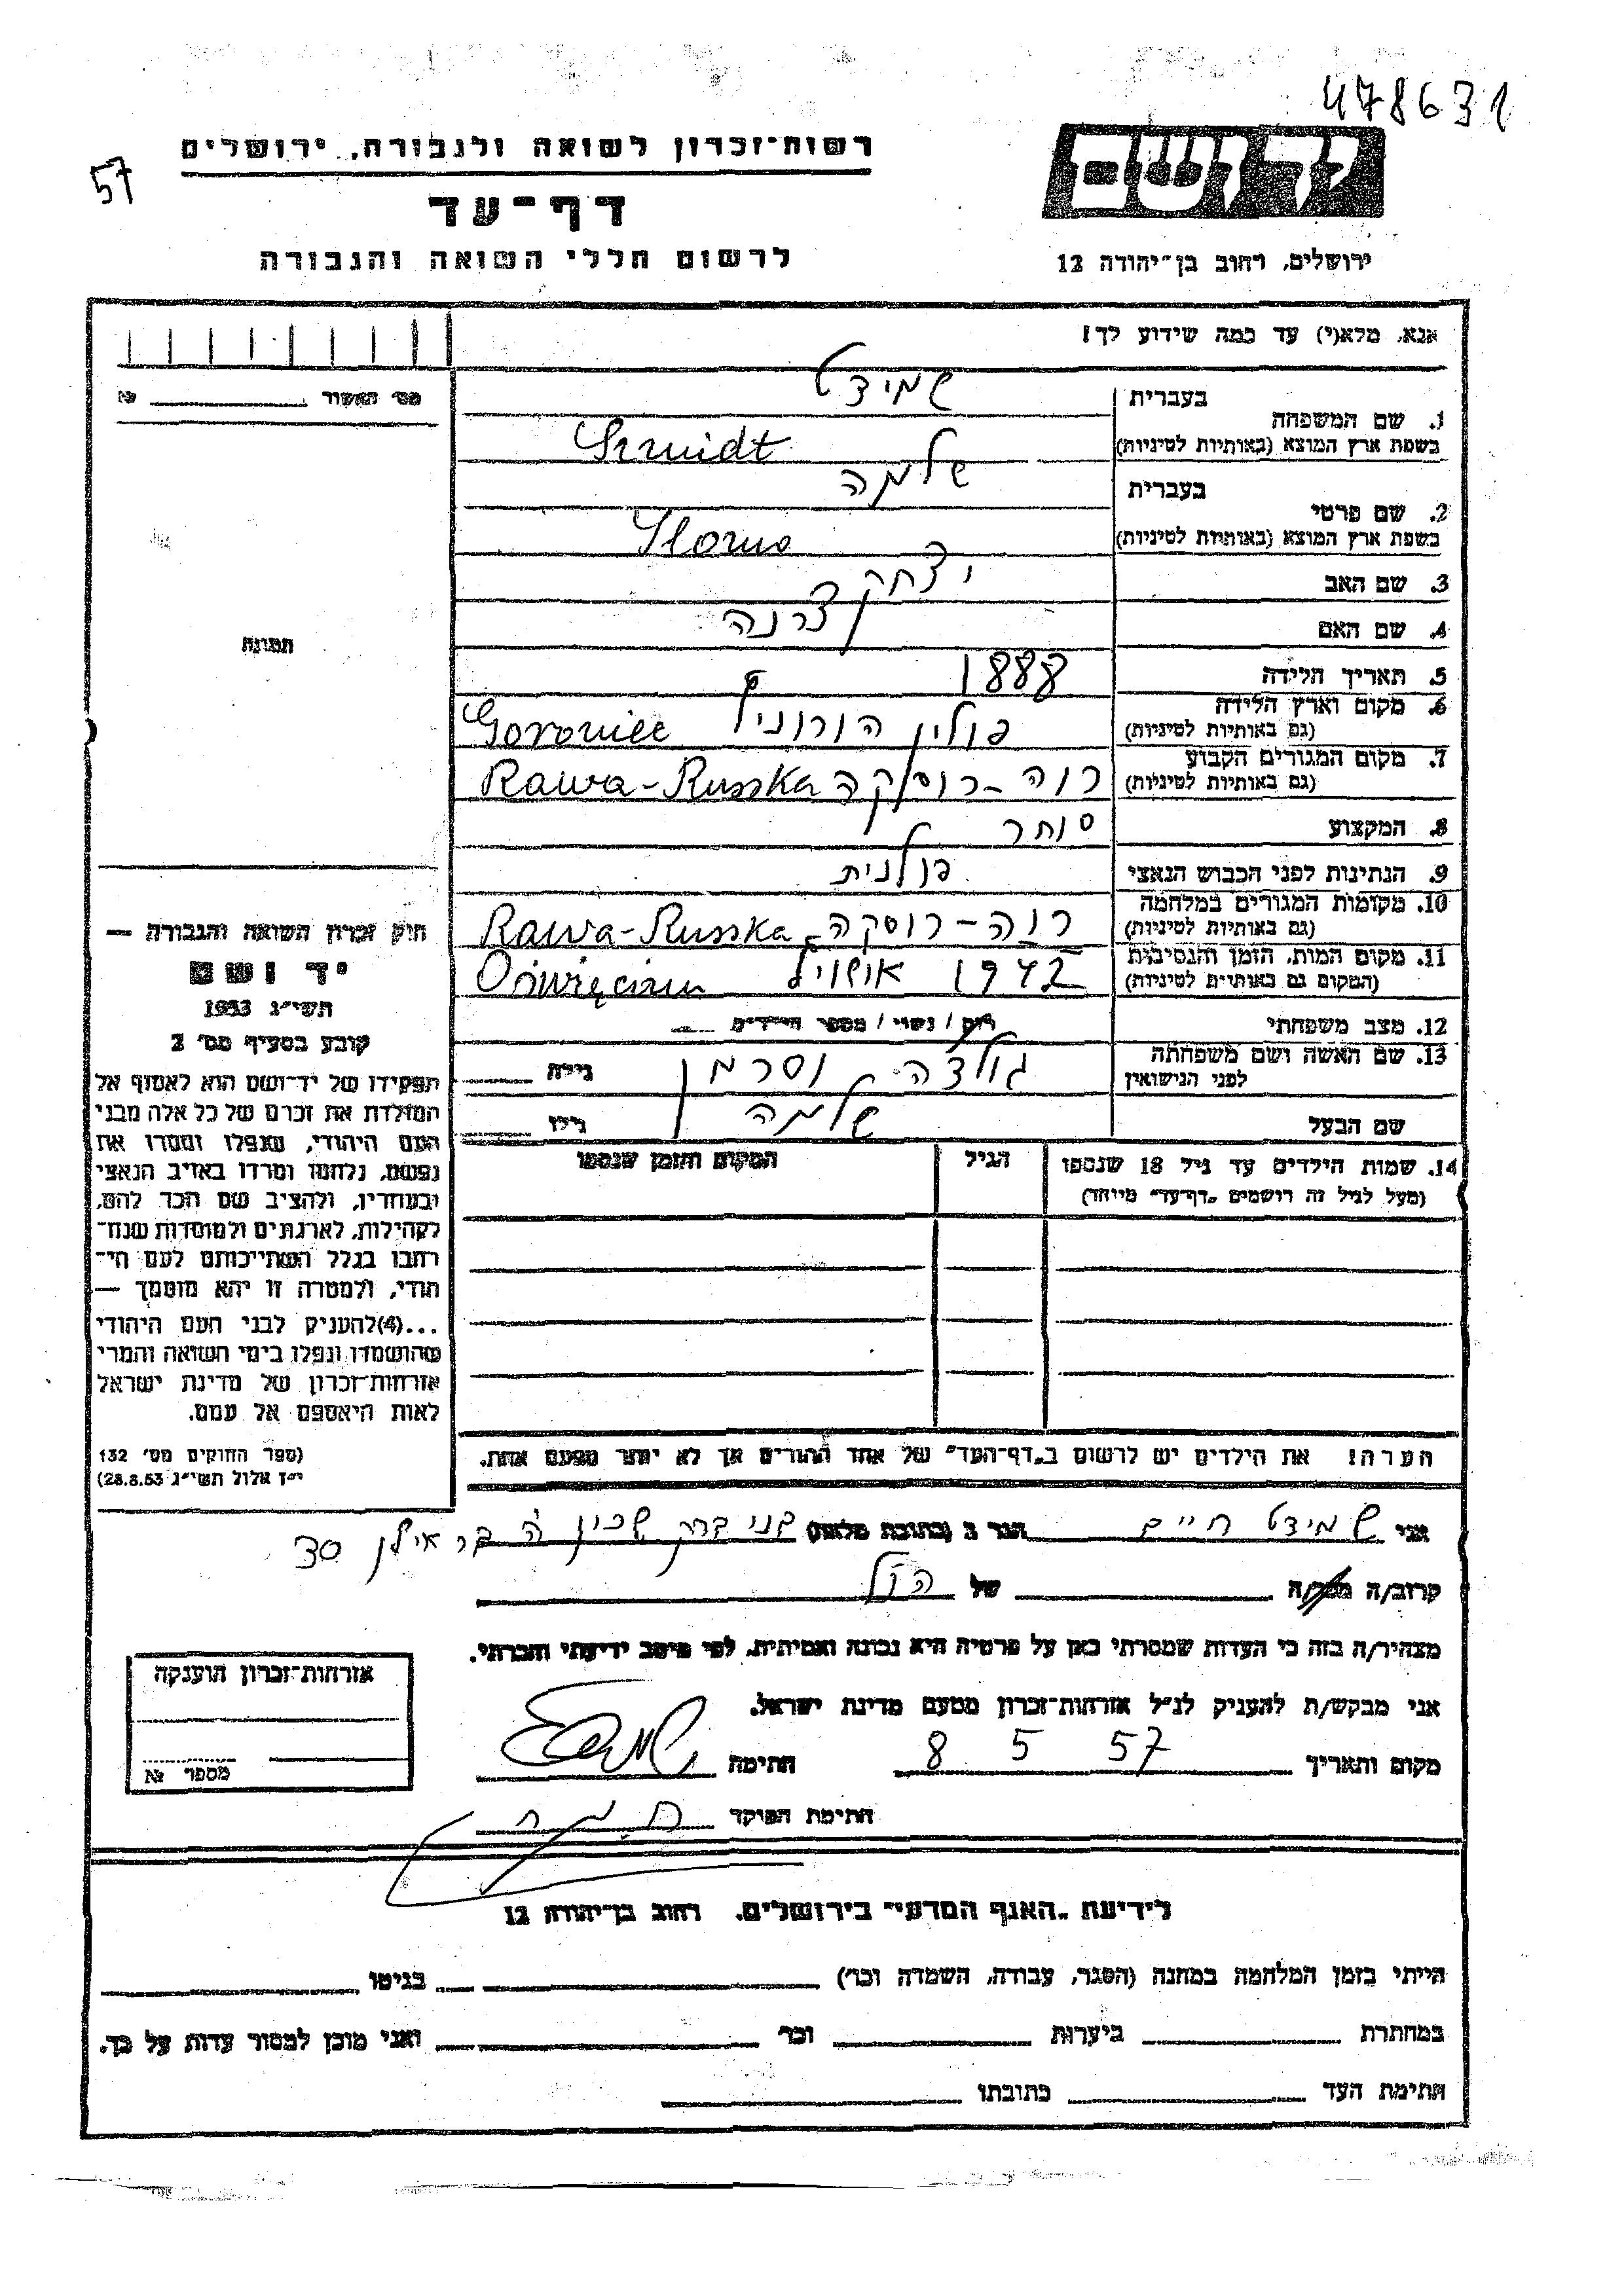 478631
57
רשות־זכרון לשואה ולגבורה, ירושלים
דף־עד
לרשום חללי השואה והגבורה
יד ושם
ירושלים, רחוב בן־יהודה 12
אנא, מלא(י) עד כמה שידוע לך!
מס׳ האשור № 
1. שם המשפחה
בעברית שמידט
בשפת ארץ המוצא (באותיות לטיניות) Szmidt
2. שם פרטי
בעברית שלמה
בשפת ארץ המוצא (באותיות לטיניות) Slomo
3. שם האב יצחק
4. שם האם
5. תאריך הלידה 1888
6. מקום וארץ הלידה
(גם באותיות לטיניות) פולין Goroniec
7. מקום המגורים הקבוע
(גם באותיות לטיניות) רוה־רוסקה Rawa-Russka
8. המקצוע סוחר
9. הנתינות לפני הכבוש הנאצי פולנית
10. מקומות המגורים במלחמה
(גם באותיות לטיניות) רוה-רוסקה Rawa-Russka
11. מקום המות, הזמן והנסיבות
(המקום גם באותיות לטיניות) 1942 Oświęcim
12. מצב משפחתי רווק / נשוי / מספר הילדים
13. שם האשה ושם משפחתה
לפני הנישואין גולדה וסרמן גילה
שם הבעל שלמה גילו
14. שמות הילדים עד גיל 18 שנספו
(מעל לגיל זה רושמים „דף־עד״ מייוחד)
הגיל
המקום והזמן שנספו
הערה! את הילדים יש לרשום ב„דף־העד״ של אחד ההורים אך לא יותר מפעם אחת.
תמונה
חוק זכרון השואה והגבורה —
יד ושם
תשי״ג 1953
קובע בסעיף מס׳ 2
תפקידו של יד־ושם הוא לאסוף אל
המולדת את זכרם של כל אלה מבני
העם היהודי, שנפלו ומסרו את
נפשם, נלחמו ומרדו באויב הנאצי
ובעוזריו, ולהציב שם הכר להם,
לקהילות, לארגונים ולמוסדות שנח־
רבו בגלל השתייכותם לעם הי־
הודי, ולמטרה זו יהא מוסמך —
...(4)להעניק לבני העם היהודי
שהושמדו ונפלו בימי השואה והמרי
אזרחות־זכרון של מדינת ישראל
לאות היאספם אל עמם.
(ספר החוקים מס׳ 132
י״ז אלול תשי״ג 28.8.53)
אני שמידט חיים הגר ב (כתובת מלאה) בני ברק שכון ה׳ בר אילן 30
קרוב/ה מכר/ה של הנ״ל
מצהיר/ה בזה כי העדות שמסרתי כאן על פרטיה היא נכונה ואמיתית, לפי מיטב ידיעתי והכרתי.
אני מבקש/ת להעניק לנ״ל אזרחות־זכרון מטעם מדינת ישראל.
מקום ותאריך 8 5 57 חתימה
חתימת הפוקד
אזרחות־זכרון הוענקה
מספר №
לידיעת „האגף המדעי״ בירושלים, רחוב בן־יהודה 12
הייתי בזמן המלחמה במחנה (הסגר, עבודה, השמדה וכו׳) בגיטו
במחתרת ביערות וכו׳ ואני מוכן למסור עדות על כך.
חתימת העד כתובתו